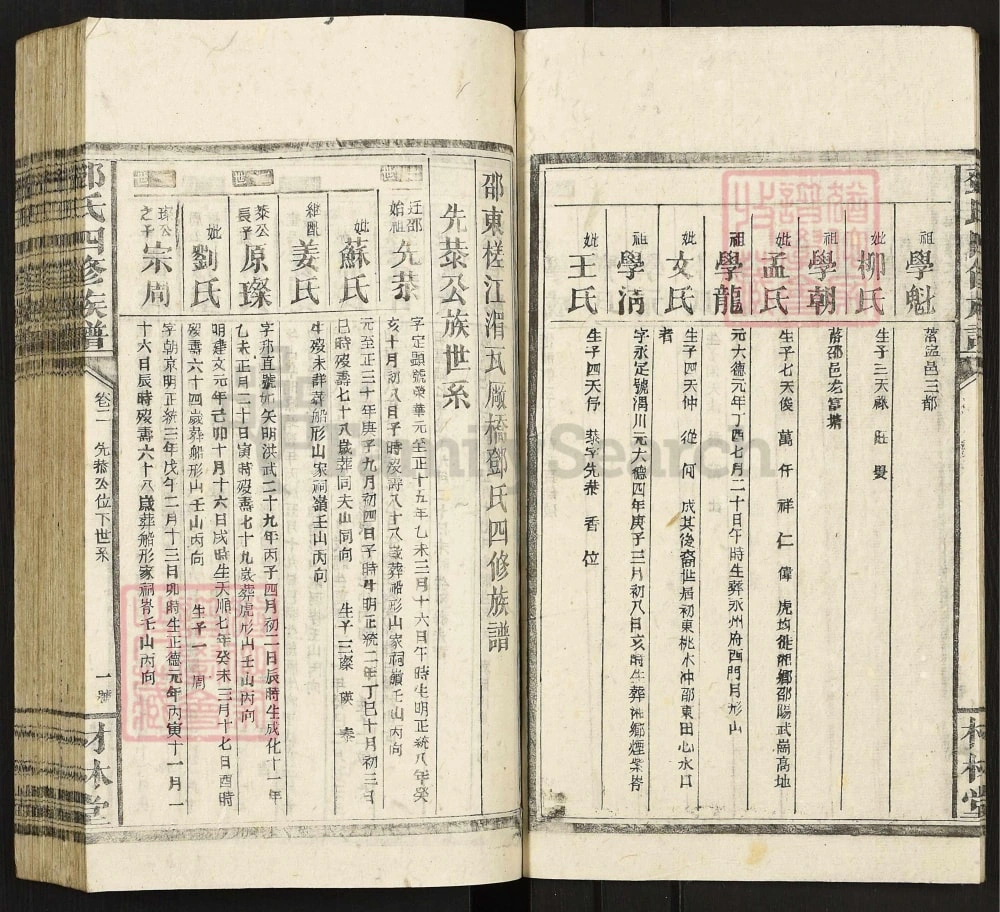 祖 學魁 落 邑三都
妣 柳氏 生子三天祿 旺 癸
祖 學朝 落邵邑龙富塘
妣 孟氏 生子七天俊 萬 仟 祥 仁 偉 虎均徙湘鄉邵陽武崗高地
祖 學龍 元大德元年丁酉七月二十日午時生葬永州府西門月形山
妣 文氏 生子四天仲 從 何 成其後裔世居初東桃木冲邵東田心水口
者
祖 學淸 字永定號渭川元大德四年庚子三月初八日亥時生葬湘鄉煙柴岺
妣 王氏 生子四天伃 泰子先恭 香 位
邵東槎江湄瓦厰橋鄧氏四修族譜
先恭公族世系
迁邵始祖 先恭 字定顯號榮華元至正十五年乙未三月十六日午時生明正統八年癸
亥十月初八日子時没壽八十八歲葬船形山家祠嶺壬山丙向
妣 蘇氏 元至正三十年庚子九月初四日子時生明正統二年丁巳十月初三日
巳時歿壽七十八歲葬同夫山同向 生子三璨 瑛 泰
繼配 姜氏 生歿未詳葬船形山家祠嶺壬山丙向
恭公長子 原璨 字邦直號 矢明洪武二十九年丙子四月初二日辰時生成化十一年
乙未正月二十日寅時歿壽七十九歲葬虎形山壬山丙向
妣 劉氏 明建文元年己卯十月十六日戌時生天順七年癸未三月十七日酉時
歿壽六十四歲葬船形山壬山丙向 生子一 周
璨公之子 宗周 字朝京明正統三年戊午二月十三日卯時生正德元年丙寅十一月一
十六日辰時歿壽六十八歲葬船形家祠岺壬山丙向
鄧氏四修族譜 卷二 先恭公位下世系 一 林堂